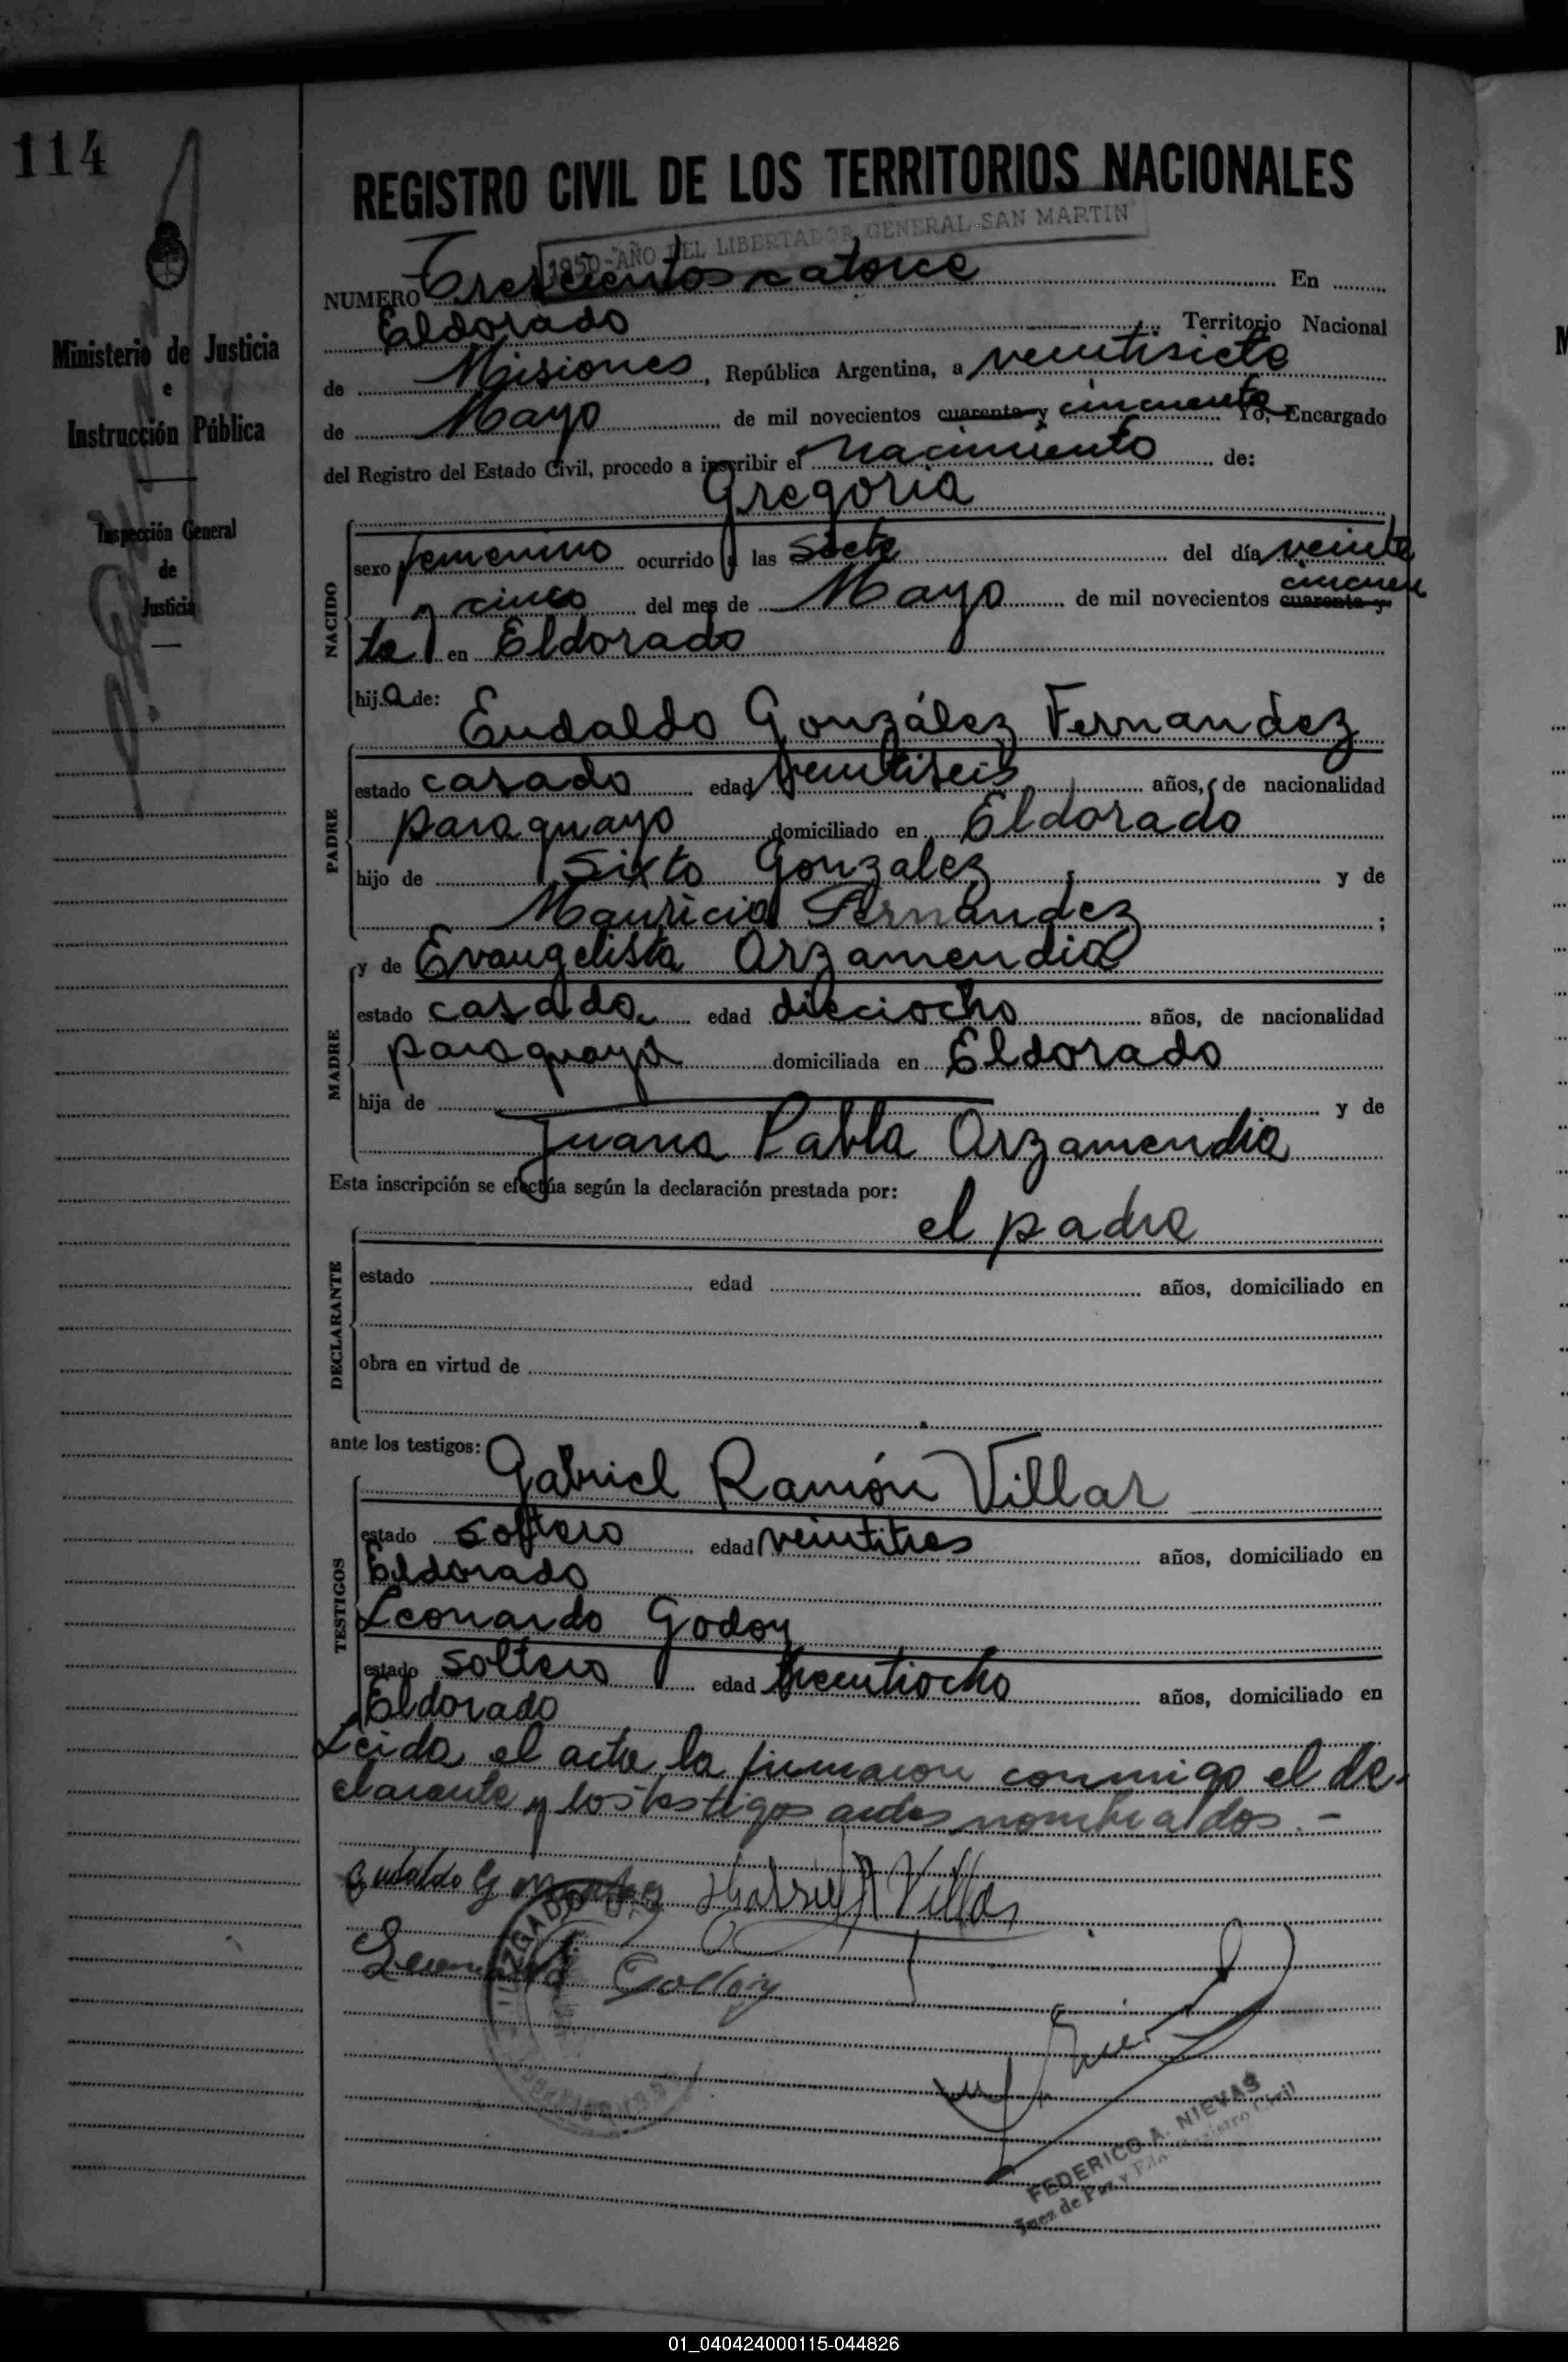 114
REGISTRO CIVIL DE LOS TERRITORIOS NACIONALES
1950-AÑO DEL LIBERTADOR GENERAL SAN MARTIN
Ministerio de Justicia
e
Instrucción Pública
Inspección General
de
Justicia
NUMERO Trescientos catorce En
Eldorado Territorio Nacional
de Misiones, República Argentina, a veintisiete
de Mayo de mil novecientos cuarenta y cincuenta Yo, Encargado
del Registro del Estado Civil, procedo a inscribir el Nacimiento de:
Gregoria
NACIDO
sexo femenino ocurrido a las Siete del día veinte
y cinco del mes de Mayo de mil novecientos cuarenta y cincuen
ta en Eldorado
hija de:
Eudaldo González Fernandez
PADRE
estado casado edad veintiseis años, de nacionalidad
paraguayo domiciliado en Eldorado
hijo de Sixto Gonzalez y de
Mauricia Fernandez ;
y de Evangelista Arzamendia
MADRE
estado casada edad dieciocho años, de nacionalidad
paraguaya domiciliada en Eldorado
hija de y de
Juana Pabla Arzamendia
Esta inscripción se efectúa según la declaración prestada por:
el padre
DECLARANTE
estado edad años, domiciliado en
obra en virtud de
ante los testigos:
Gabriel Ramón Villar
TESTIGOS
estado soltero edad veintitres años, domiciliado en
Eldorado
Leonardo Godoy
estado soltero edad treintiocho años, domiciliado en
Eldorado
Leida el acta la firmaron conmigo el de-
clarante y los testigos antes nombrados.-
Eudaldo Gonzalez Gabriel R Villar
Leonardo Godoy
FEDERICO A. NIEVAS
Juez de Paz y Edo. Registro Civil
01_040424000115-044826